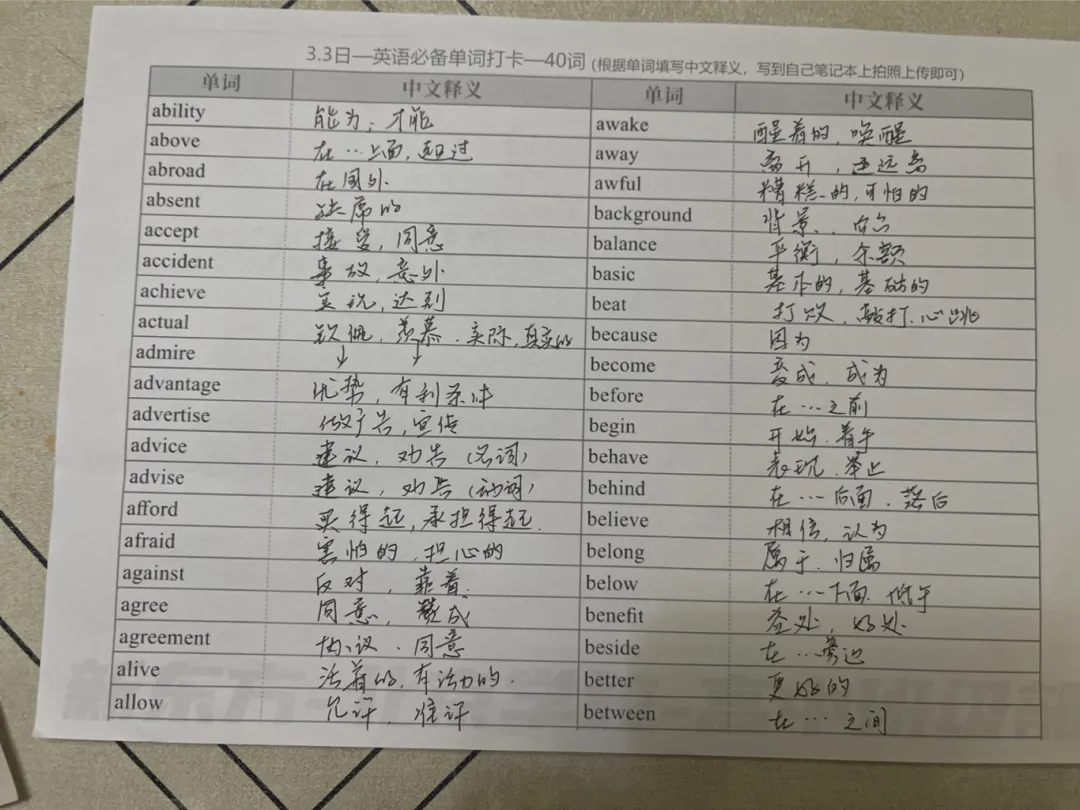 3.3日—英语必备单词打卡—40词 (根据单词填写中文释义，写到自己笔记本上拍照上传即可)
单词 中文释义 单词 中文释义
ability 能力；才能 awake 醒着的，唤醒
above 在…上面，超过 away 离开，远离
abroad 在国外 awful 糟糕的，可怕的
absent 缺席的 background 背景，
accept 接受，同意 balance 平衡，余额
accident 事故，意外 basic 基本的，基础的
achieve 实现，达到 beat 打败，敲打，心跳
actual 钦佩，羡慕．实际，真实的 because 因为
admire ↓ ↓ become 变成．成为
advantage 优势，有利条件 before 在…之前
advertise 做广告，宣传 begin 开始．着手
advice 建议，劝告（名词） behave 表现．举止
advise 建议，劝告（动词） behind 在…后面．落后
afford 买得起，承担得起． believe 相信，认为
afraid 害怕的，担心的 belong 属于．归属
against 反对，靠着． below 在…下面．低于
agree 同意，赞成 benefit 益处，好处
agreement 协议．同意 beside 在…旁边
alive 活着的，有活力的． better 更好的
allow 允许，准许 between 在…之间
新东方